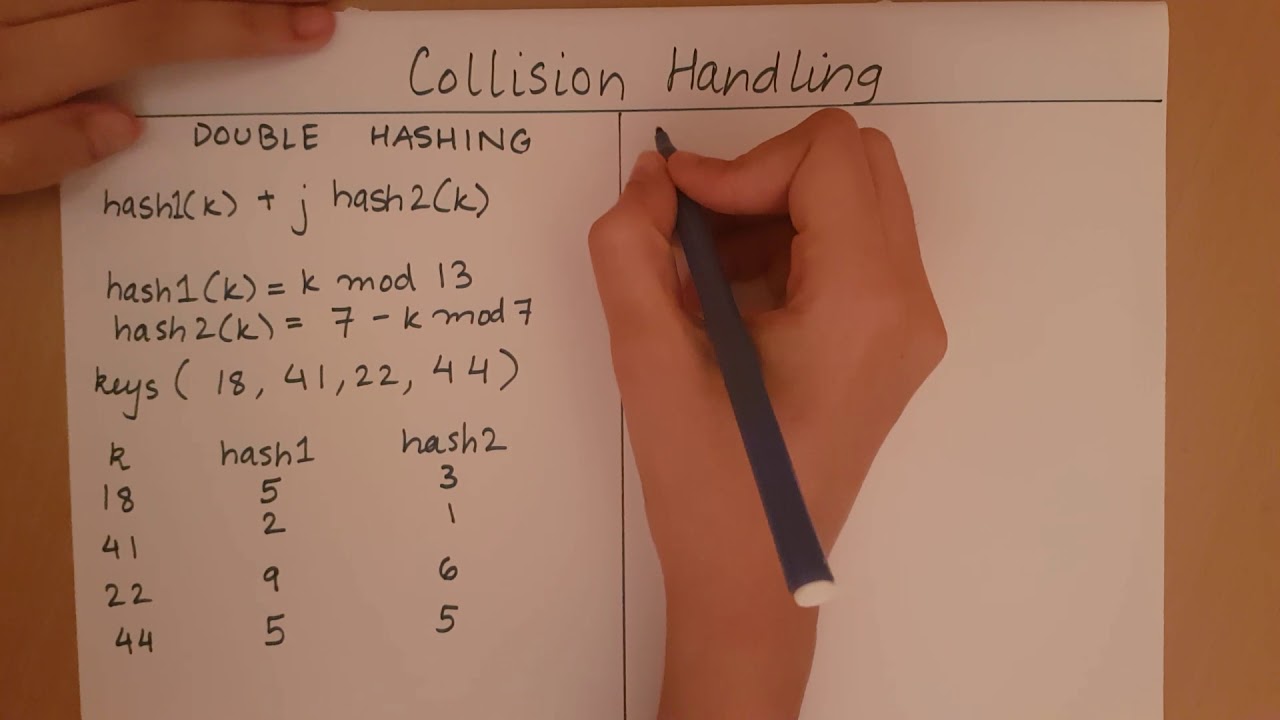 Collision Handling
DOUBLE HASHING
hash1(k) + j hash2(k)
hash1(k) = k mod 13
hash2(k) = 7 - k mod 7
keys ( 18, 41, 22, 44 )
k hash1 hash2
18 5 3
41 2 1
22 9 6
44 5 5